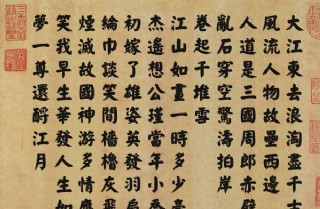 大江東去浪淘盡千古
風流人物故壘西邊
人道是三國周郎赤壁
亂石穿空驚濤拍岸
卷起千堆雪
江山如畫一時多少
杰遙想公瑾當年小
初嫁了雄姿英發羽扇
綸巾談笑間檣櫓灰飛
煙滅故國神游多情應
笑我早生華發人生如
夢一尊還酹江月